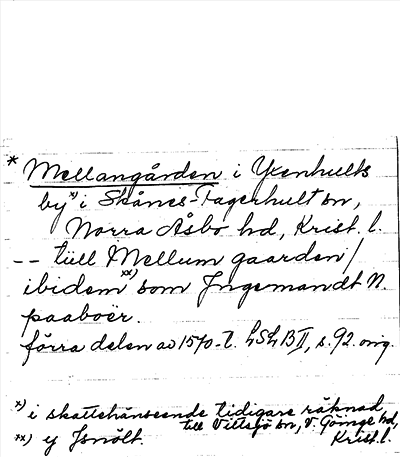 * Mellangården i Yxenhults
by x) i Skånes-Fagerhult sn,
Norra Åsbo hd, Krist. l.
-- till Mellum gaarden/
ibidem xx) som Ingemandt N.
paaboer.
förra delen av 1570-t. LSLB II, s. 92. orig.
x) i skattehänseende tidigare räknad
till Vittsjö sn, V. Göinge hd,
Krist. l.
xx) ej Isnölt.